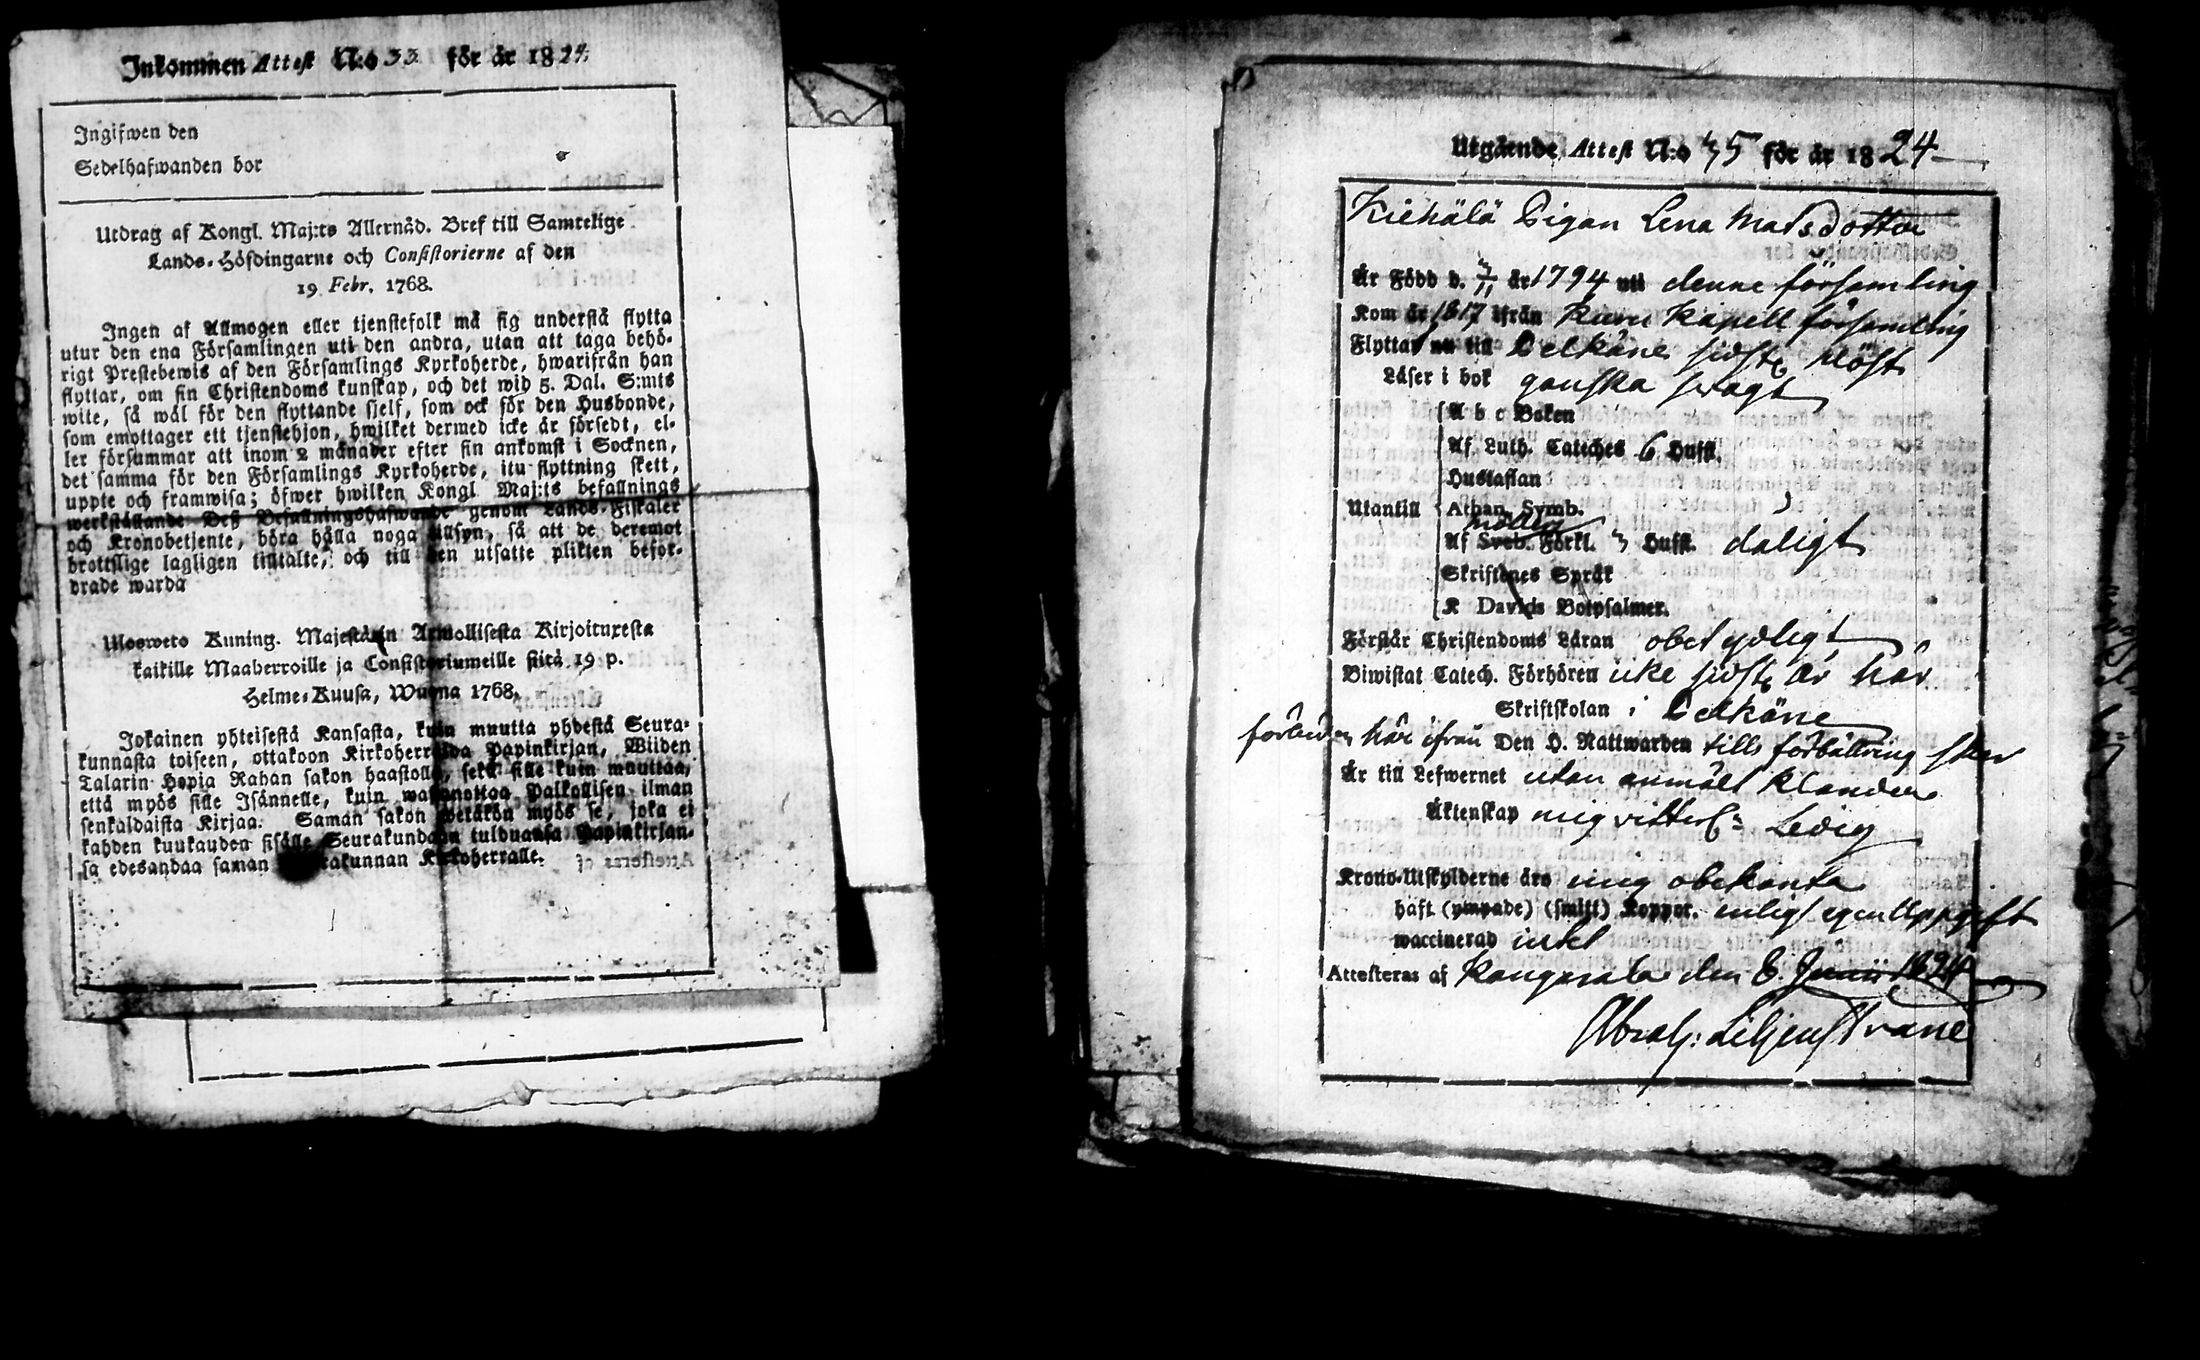 Inkommen Attest N:o 33 för år 1824.
Ingifwen den
Sedelhafwanden bor
Utdrag af Kongl. Maj:ts Allernåd. Bref till Samtelige
Lands-Höfdingarne och Consistorierne af den
19 Febr. 1768.
Ingen af Allmogen eller tjenstefolk må sig understå flytta
utur den ena Församlingen uti den andra, utan att taga behö-
rigt Prestebewis af den Församlings Kyrkoherde, hwarifrån han
flyttar, om sin Christendoms kunskap, och det wid 5. Dal. S:mts
wite, så wäl för den flyttande sjelf, som ock för den Husbonde,
som emottager ett tjenstehjon, hwilket dermed icke är försedt, el-
ler försummar att inom 2 månader efter sin ankomst i Socknen,
det samma för den Församlings Kyrkoherde, itu flyttning skett,
uppte och framwisa; öfwer hwilken Kongl Maj:ts befallnings
werkställande Deß Befallningshafwande genom Lands-Fiskaler
och Kronobetjente, böra hålla noga tillsyn, så att de deremot
brottslige lagligen tilltalte, och till den utsatte plikten befor-
drade warda
Ulosweto Kuning. Majestätin Armollisesta Kirjoituxesta
kaikille Maaherroille ja Consistoriumeille siitä 19 p.
Helme-Kuusa, Wuona 1768.
Jokainen yhteisestä Kansasta, kuin muutta yhdestä Seura-
kunnasta toiseen, ottakoon Kirkoherralda Papinkirjan, Wiiden
Talarin Hopia Rahan sakon haastolla, sekä sille kuin muuttaa,
että myös sille Isännelle, kuin wastanottaa Palkollisen ilman
senkaldaista Kirjaa. Saman sakon wetäkön myös se, joka ei
kahden kuukauden sisälle Seurakundaan tulduansa Papinkirjan-
sa edesandaa saman Seurakunnan Kirkoherralle.
Utgående Attest N:o 35 för år 1824
Pigan Lena Matsdotter
Är Född d. 3/11 år 1794 uti denne församling
Kom år 1817 ifrån Kuru Kapell församling
Flyttar nu till Pelkäne sidste Höst
Läser i bok ganska svagt
A b c Boken
Af Luth. Cateches 6 Hufst.
Hustaflan
Utantill Athan. Symb.
Möllers
Af Sveb. Förkl. 3 Hufst. dåligt
Skriftenes Språk
K Davids Botpsalmer.
Förstår Christendoms Läran obetydligt
Biwistat Catech. Förhören icke sidste år här
Skriftskolan i Pelkäne
förbuden här ifrån Den H. Nattwarden tills förbättring sker
Är till Lefwernet utan anmält klander
Äktenskap mig vitterl: Ledig
Krono-Utskylderne äro mig obekanta
haft (ympade) (smitt) Koppor. enligt egen Uppgift
waccinerad intet
Attesteras af Kangasala den 8 Junii 1824
Abrah: Liljenstrane